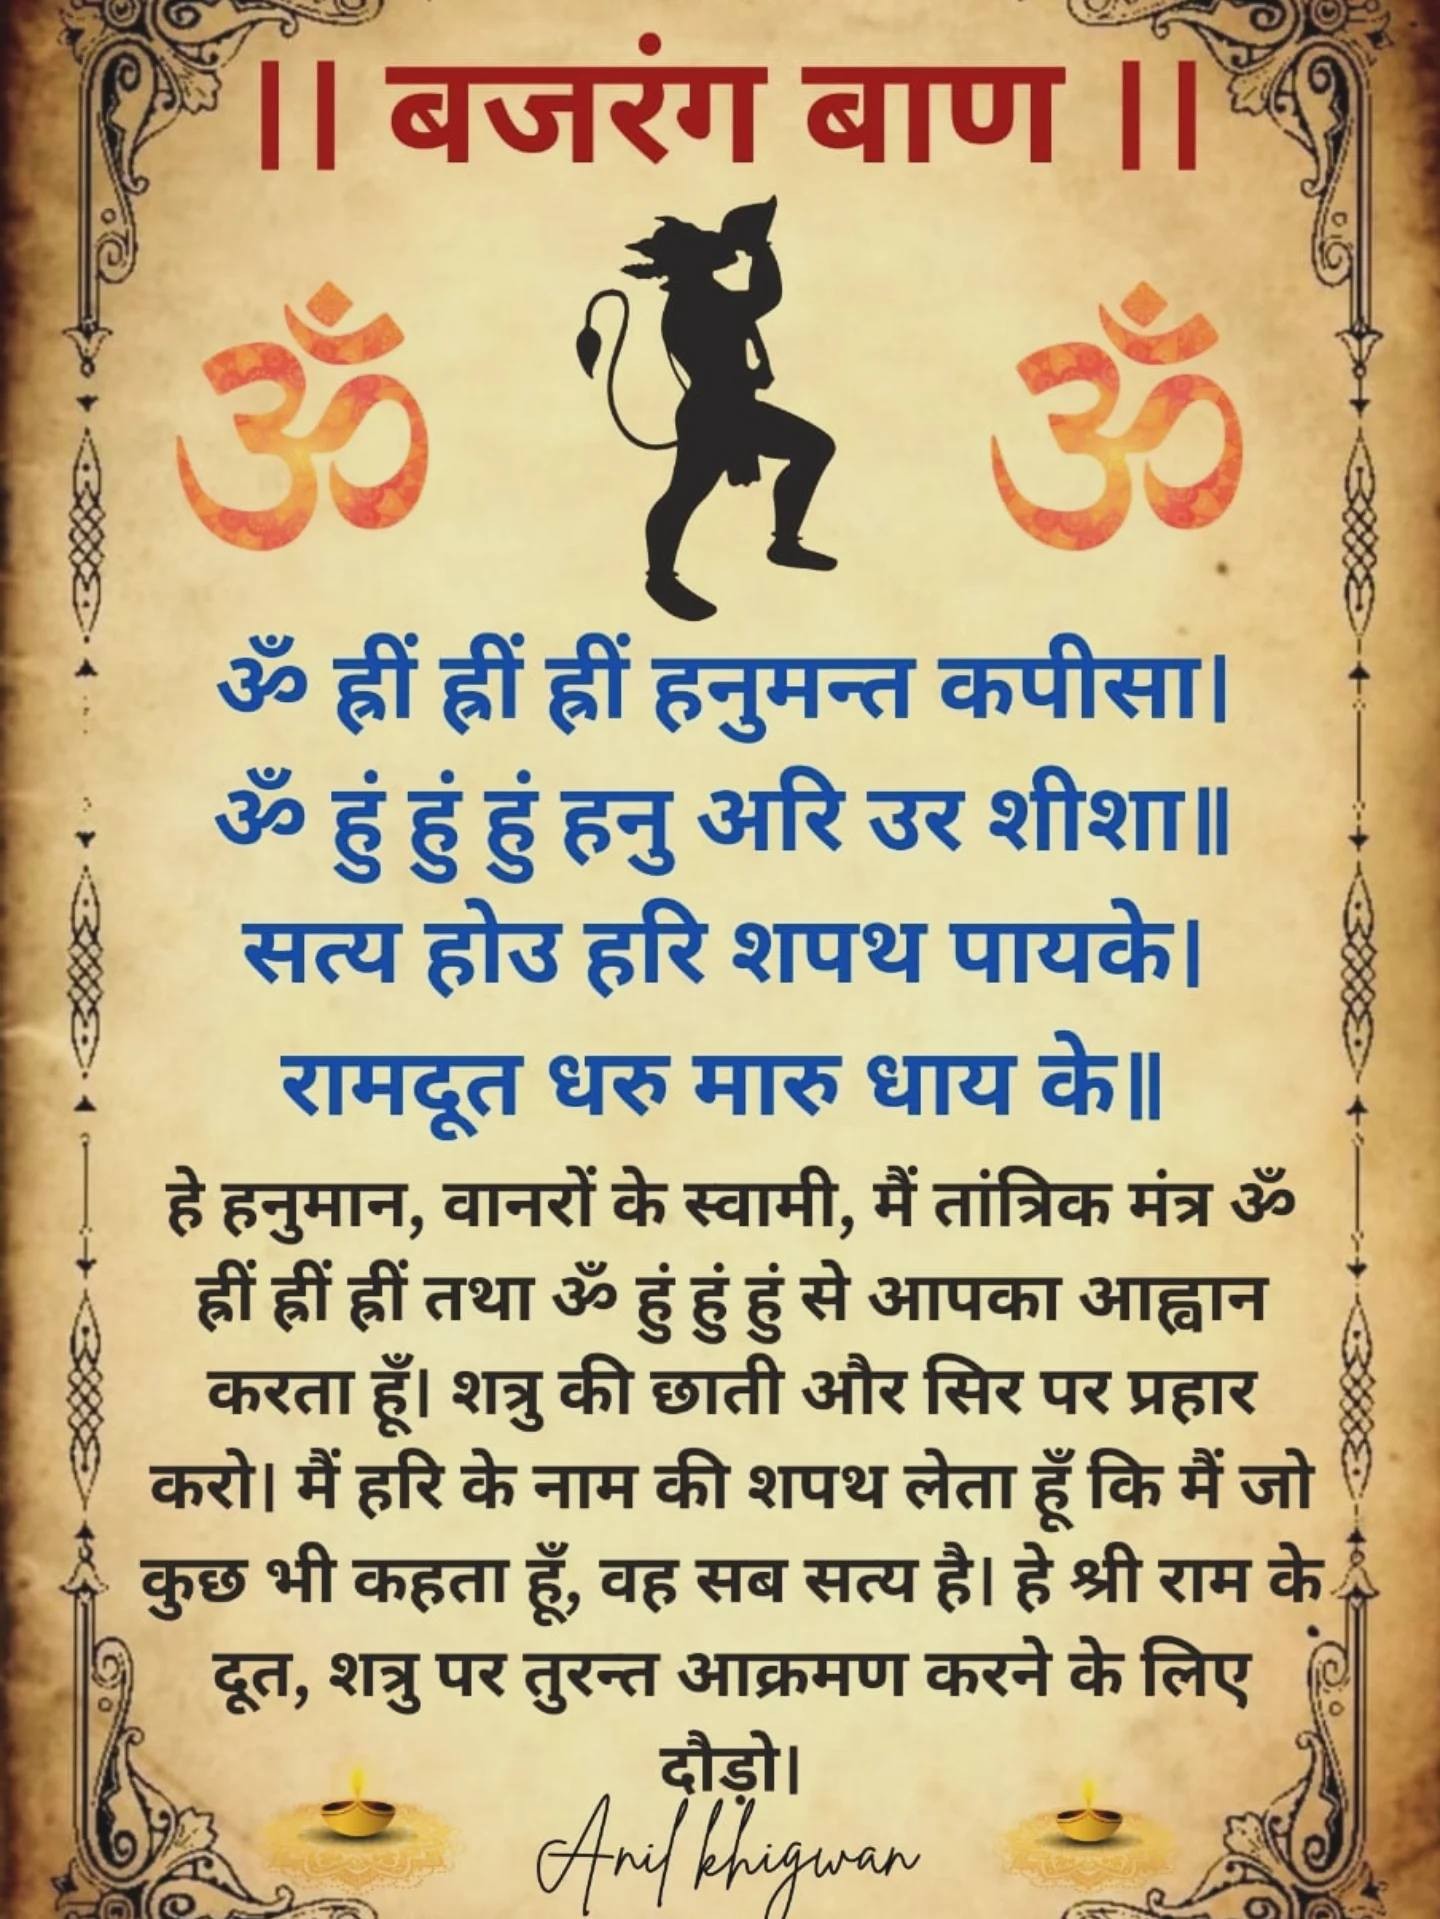 || बजरंग बाण ||
ॐ ॐ
ॐ ह्रीं ह्रीं ह्रीं हनुमन्त कपीसा।
ॐ हुं हुं हुं हनु अरि उर शीशा॥
सत्य होउ हरि शपथ पायके।
रामदूत धरु मारु धाय के॥
हे हनुमान, वानरों के स्वामी, मैं तांत्रिक मंत्र ॐ
ह्रीं ह्रीं ह्रीं तथा ॐ हुं हुं हुं से आपका आह्वान
करता हूँ। शत्रु की छाती और सिर पर प्रहार
करो। मैं हरि के नाम की शपथ लेता हूँ कि मैं जो
कुछ भी कहता हूँ, वह सब सत्य है। हे श्री राम के
दूत, शत्रु पर तुरन्त आक्रमण करने के लिए
दौड़ो।
Anil khigwan